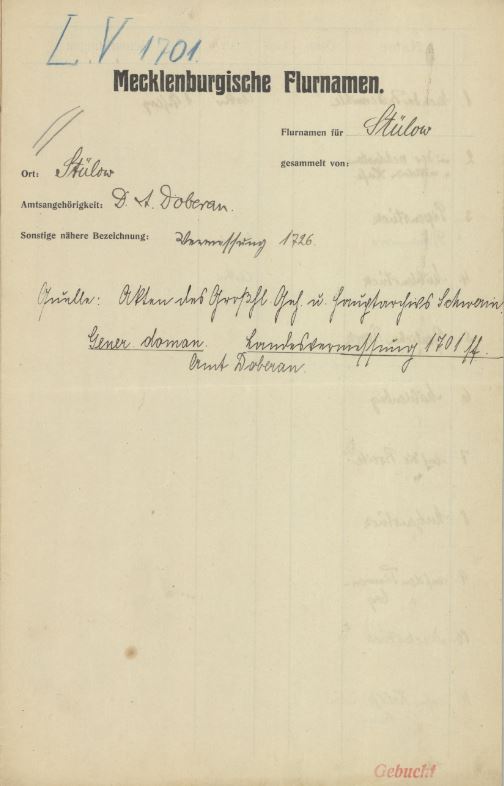 L.V. 1701.
Mecklenburgische Flurnamen.
Flurnamen für Stülow
gesammelt von:
Ort: Stülow
Amtsangehörigkeit: D. A. Doberan.
Sonstige nähere Bezeichnung: Vermessung 1726.
Quelle: Akten des Großhl Geh. u. Hauptarchivs Schwerin.
Gener. doman. Landesvermessung 1701 ff.
Amt Doberan.
Gebucht